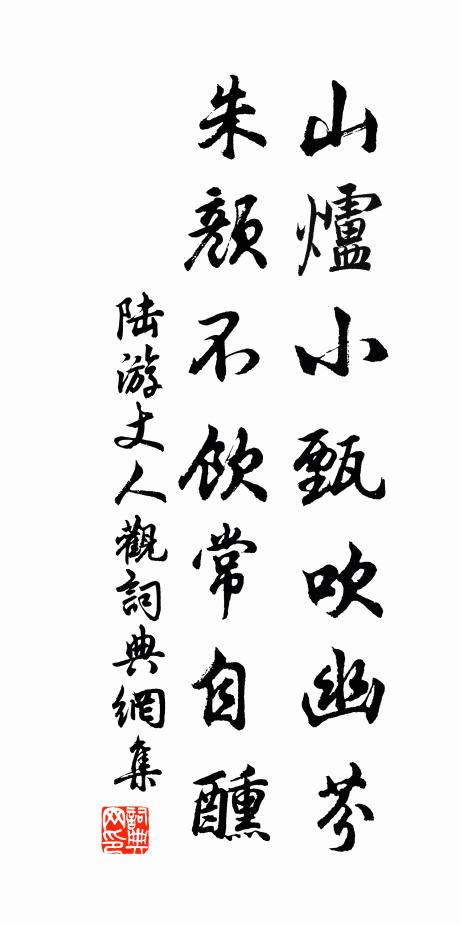 山爐小甄吹幽芬
朱顏不飲常自醺
陆游丈人觀詞典網集
詞典网印